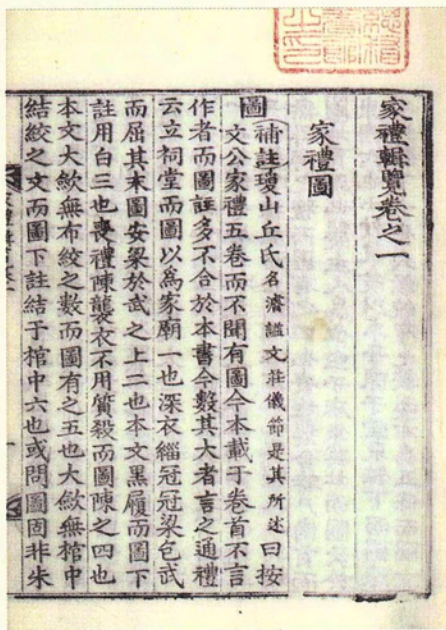 家禮輯覽卷之一
家禮圖
圖
補註瓊山丘氏名濬謚文莊儀節是其所述曰按
文公家禮五卷而不聞有圖今本載于卷首不言
作者而圖註多不合於本書今數其大者言之通禮
云立祠堂而圖以爲家廟一也深衣緇冠冠梁包武
而屈其末圖安梁於武之上二也本文黑履而圖下
註用白三也喪禮陳襲衣不用質殺而圖陳之四也
本文大斂無布絞之數而圖有之五也大斂無棺中
結絞之文而圖下註結于棺中六也或問圖固非朱